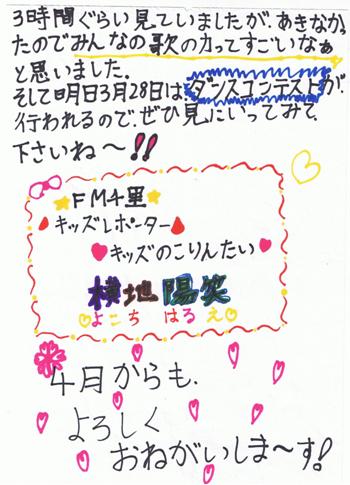 3時間ぐらい見ていましたが、あきなかっ
たのでみんなの歌の力ってすごいなぁ
と思いました。
そして明日3月28日は、ダンスコンテストが
行われるので、ぜひ見にいってみて
下さいね〜!!
FM千里
キッズレポーター
キッズのこりんたい
横地陽笑
よこち はるえ
4月からも、
よろしく
おねがいしま〜す!